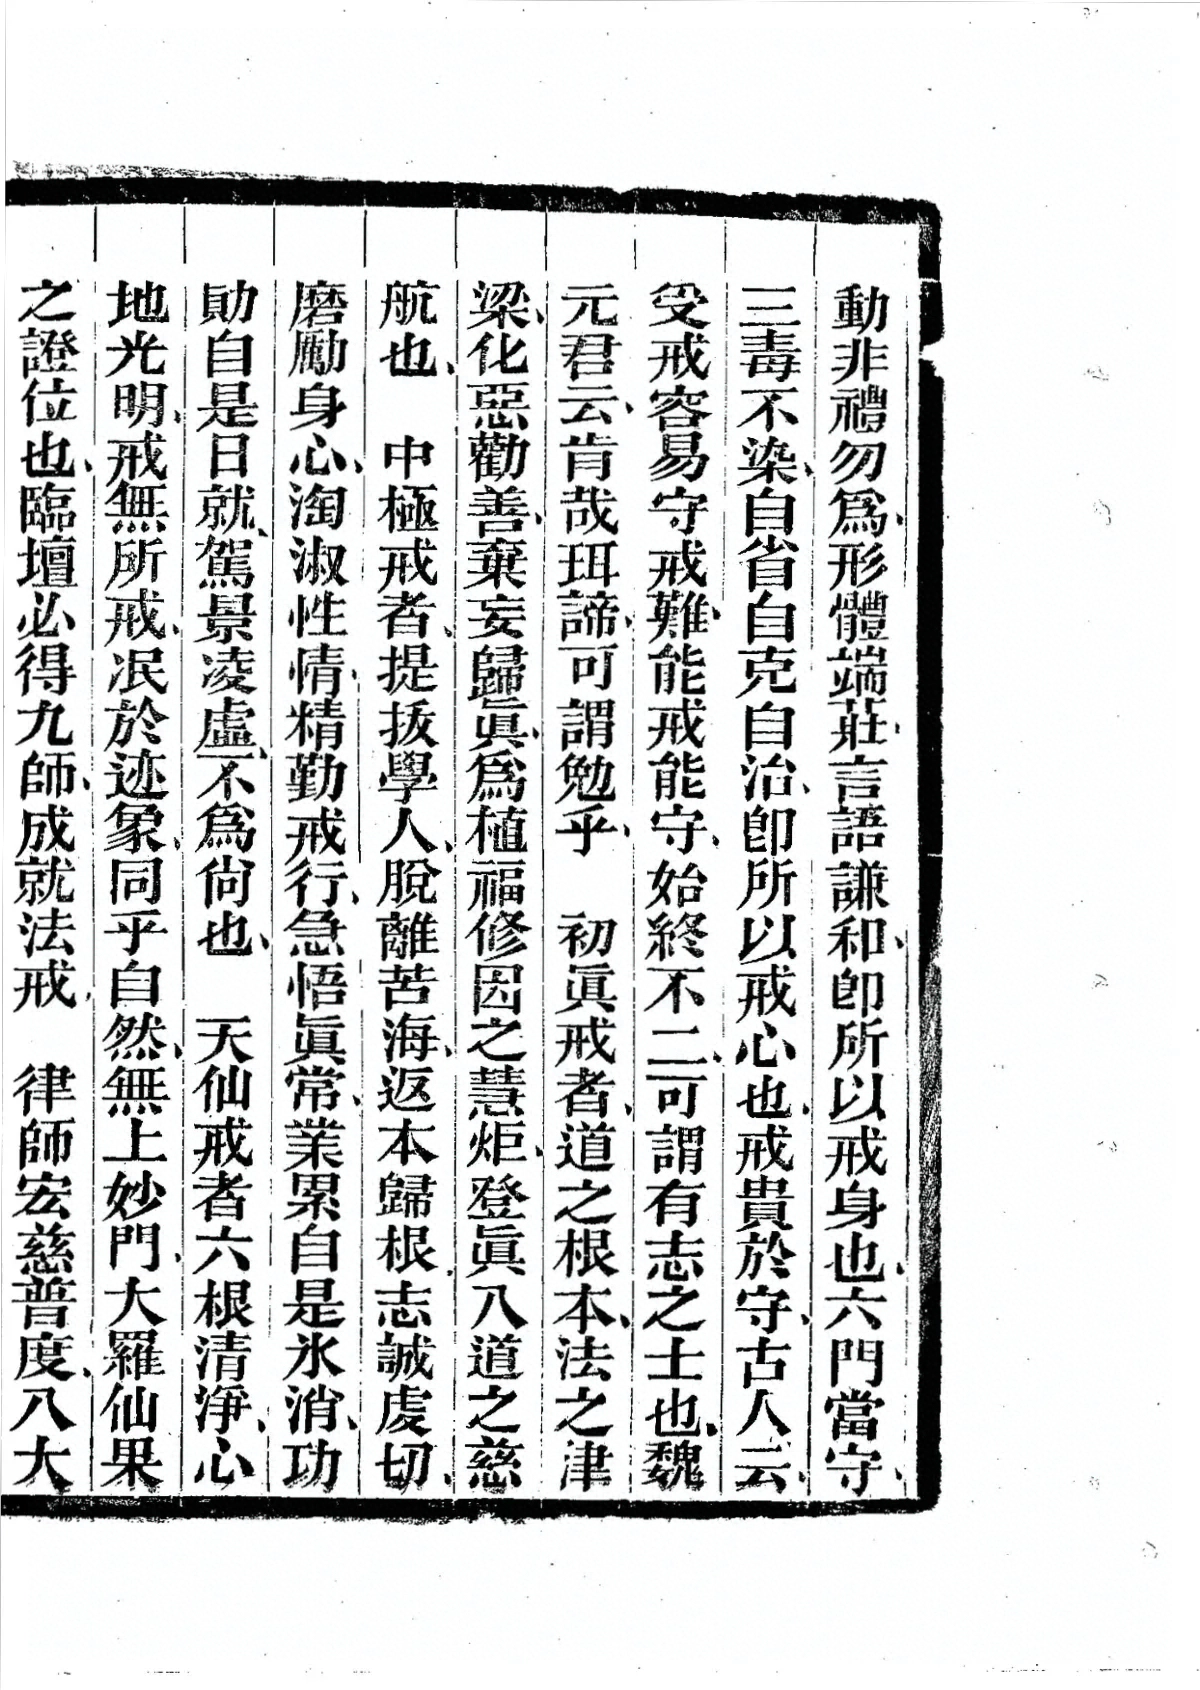 動非禮勿爲、形體端莊、言語謙和、卽所以戒身也、六門當守、
三毒不染、自省自克自治、卽所以戒心也、戒貴於守、古人云、
受戒容易守戒難、能戒能守、始終不二、可謂有志之士也、魏
元君云、肯哉珥諦、可謂勉乎、　初眞戒者、道之根本、法之津
梁、化惡勸善、棄妄歸眞、爲植福修因之慧炬、登眞入道之慈
航也、　中極戒者、提拔學人、脫離苦海、返本歸根、志誠虔切、
磨勵身心、淘淑性情、精勤戒行、急悟眞常、業累自是氷消、功
勛自是日就、駕景凌虛、不爲尙也、　天仙戒者六根清淨、心
地光明、戒無所戒、泯於迹象、同乎自然、無上妙門、大羅仙果
之證位也、臨壇必得九師、成就法戒、　律師宏慈普度、八大